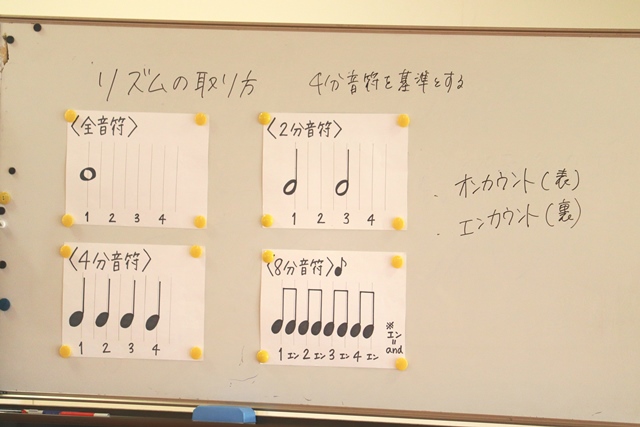 リズムの取り方　4分音符を基準とする
〈全音符〉
1 2 3 4
〈2分音符〉
1 2 3 4
・オンカウント(表)
・エンカウント(裏)
〈4分音符〉
1 2 3 4
〈8分音符〉♪
1 エン 2 エン 3 エン 4 エン
※
エン
=
and